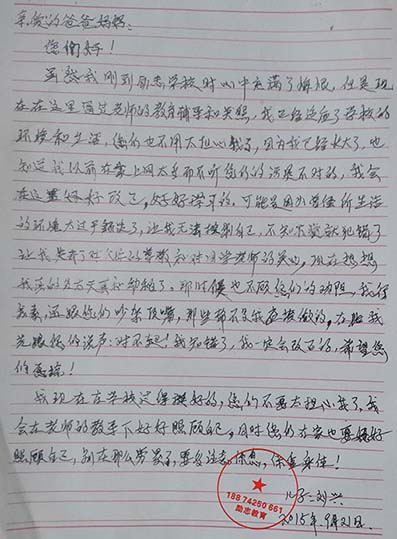 亲爱的爸爸妈妈:
您们好!
虽然我刚到励志学校时心中充满了憎恨,但是现
在在这里通过老师的教育辅导和关照,我已经适应了学校的
环境和生活,您们也不用太担心我了,因为我已经长大了,也
知道我以前在家上网太多而不听您们的话是不对的,我会
在这里好好改正,好好学习的,可能是因为曾经所生活
的环境太过于
让我失去了对父母的尊敬和对学老师的关心,现在想想
我真的是太天真和幼稚了。那时候也不顾您们的劝阻,我行
我素,还跟您们吵架顶嘴,那些都不是我应该做的,在此我
先跟您们说声:对不起!我知错了,我一定会改正的,希望您
们原谅!
我现在在学校过得挺好的,您们不要太担心我了,我
会在老师的教导下好好照顾自己,同时您们在家也要好好
照顾自己,别在那么劳累了,要多注意休息,保重身体!
儿子:刘兴
2015年9月21日
18874260661
励志教育